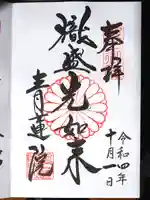 奉拝
熾盛光如来
青蓮院
令和四年
十月一日